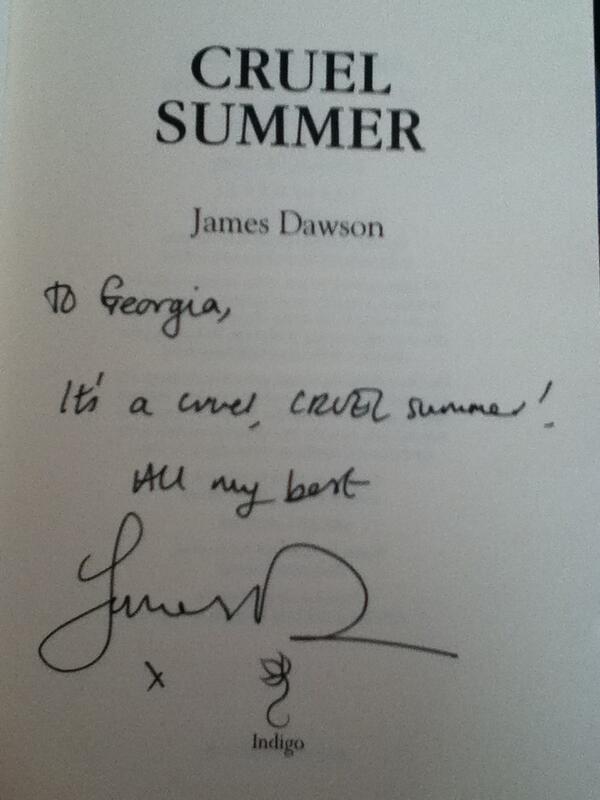 CRUEL
SUMMER
James Dawson
To Georgia,
It's a cruel, CRUEL summer!
All my best
James D
x
Indigo